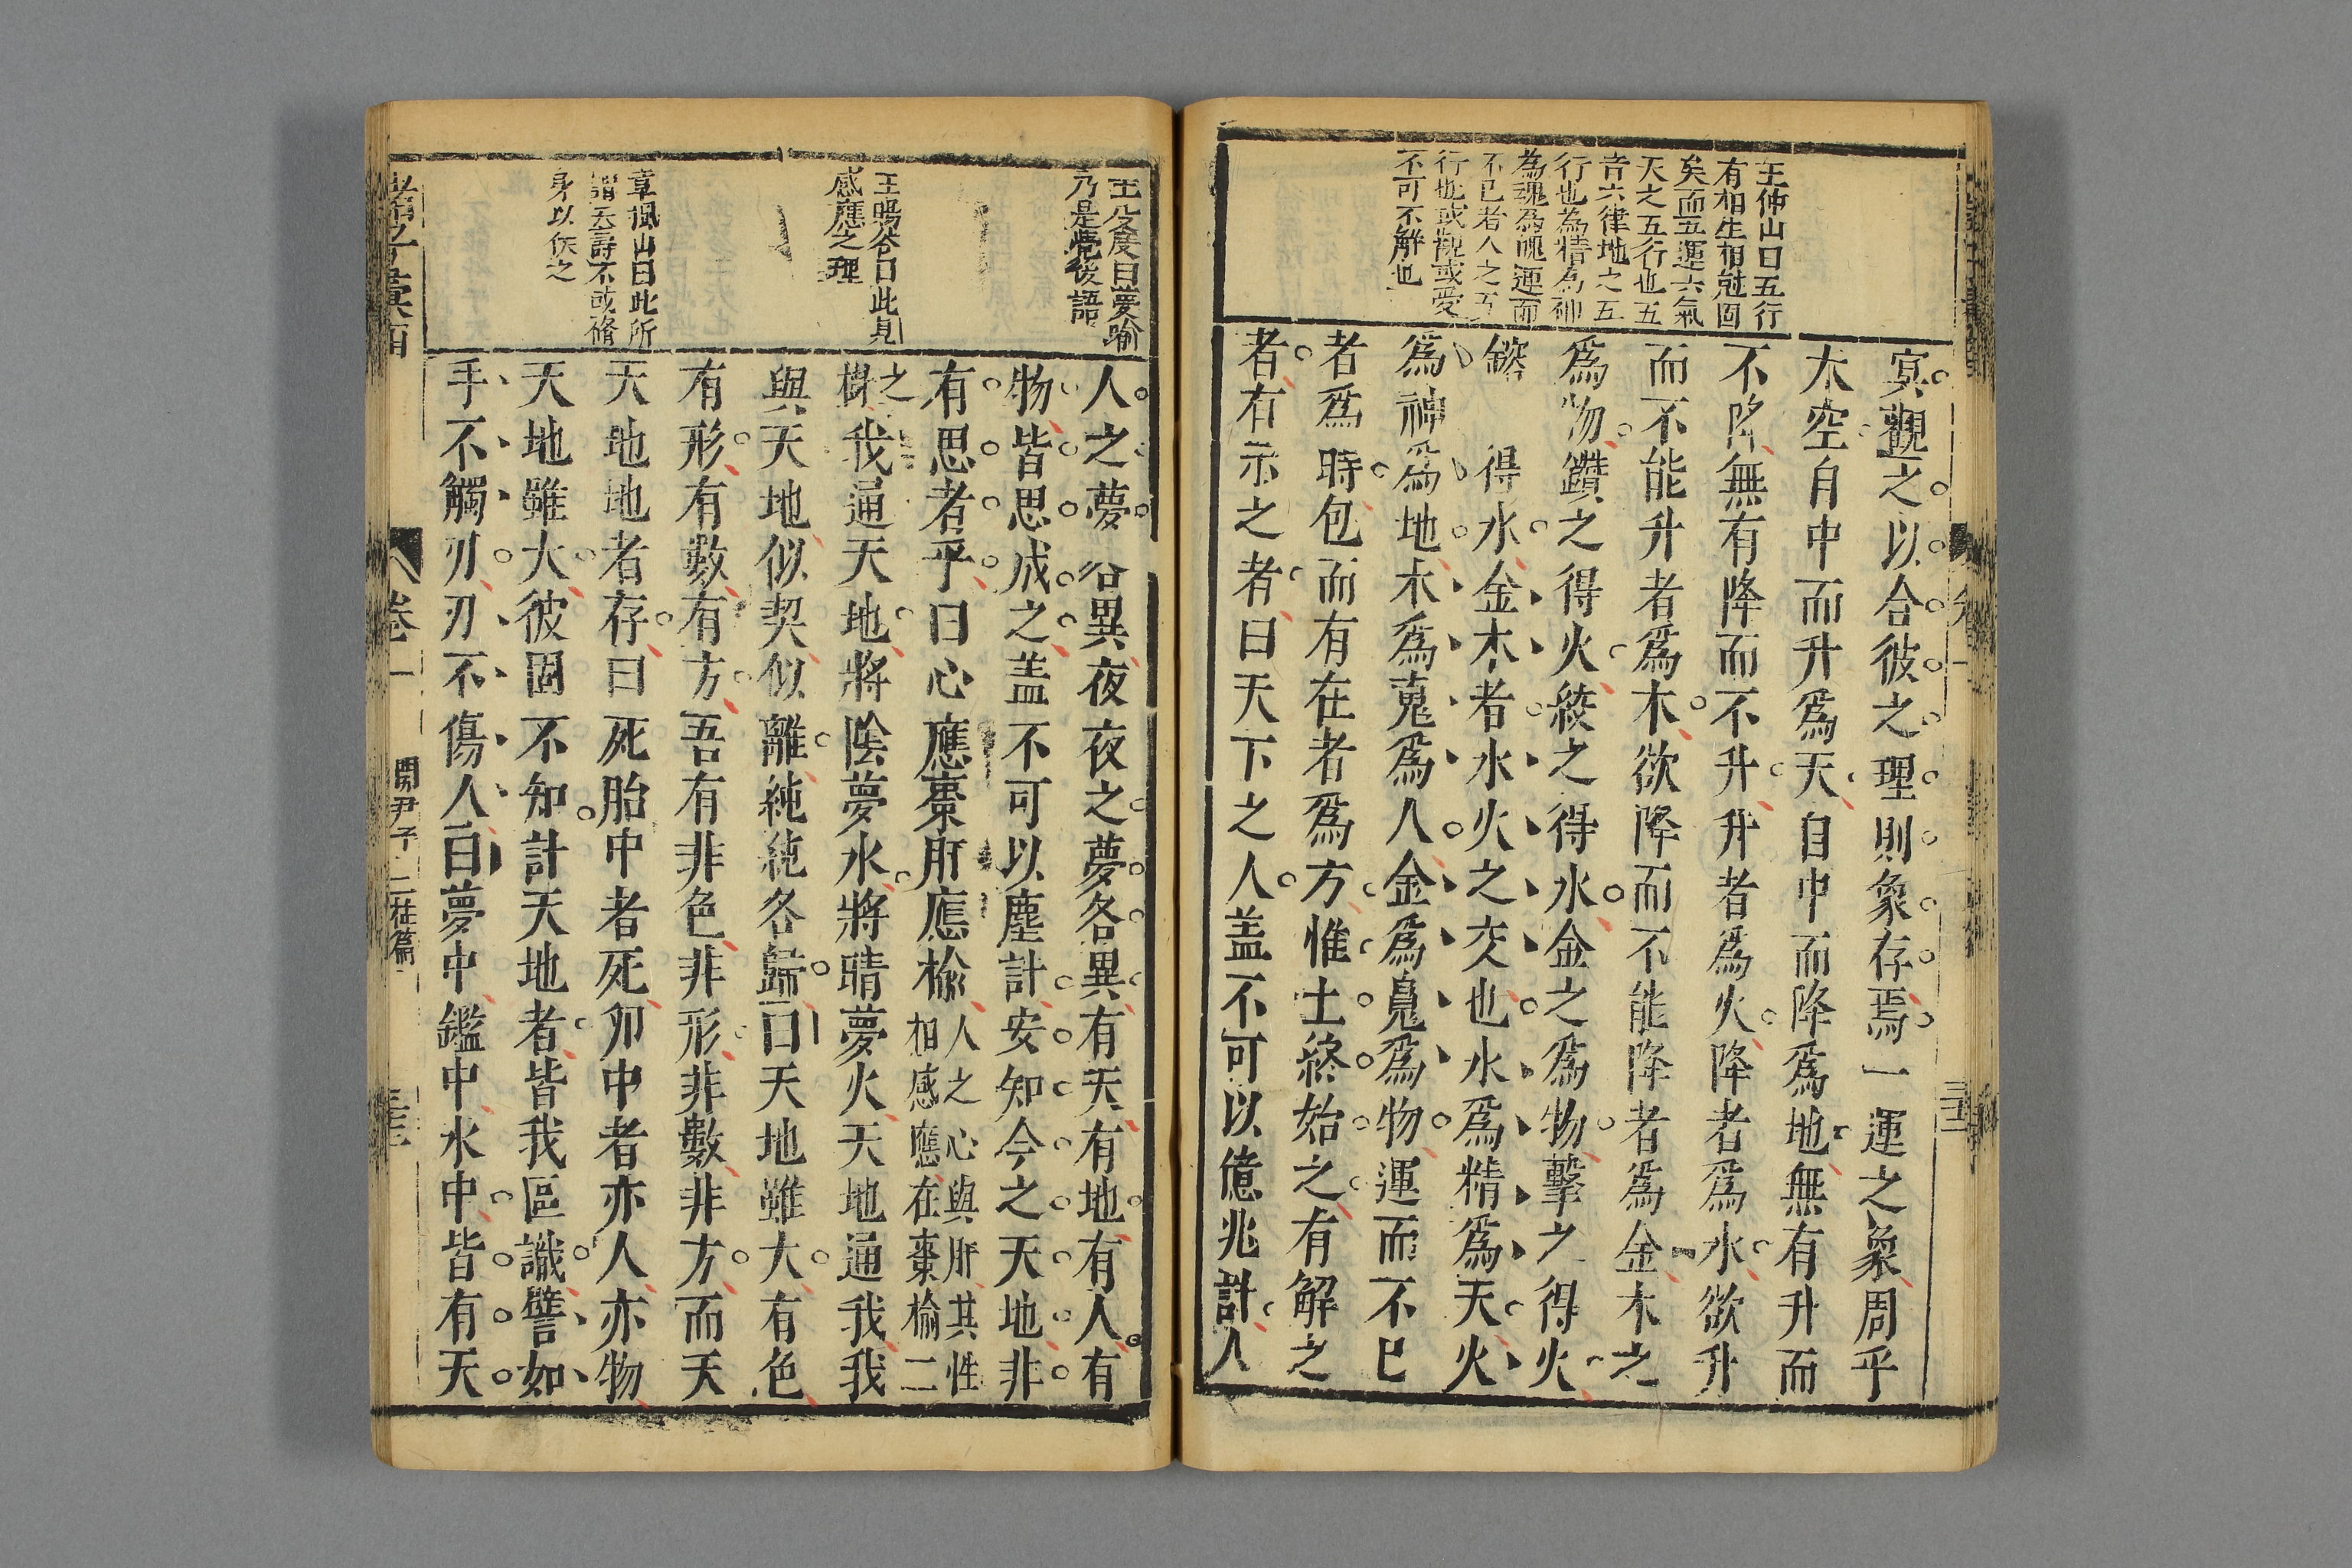 王仲山曰五行
有相生相尅固
矣而五運六氣
天之五行也五
音六律地之五
行也為精為神
為魂為魄運而
不已者人之五
行也或觀或愛
不可不解也
冥觀之以合彼之理則象存焉一運之象周乎
太空自中而升爲天自中而降爲地無有升而
不降無有降而不升升者爲火降者爲水欲升
而不能升者爲木欲降而不能降者爲金木之
爲物鑽之得火絞之得水金之爲物擊之得火
鎔 得水金木者水火之交也水爲精爲天火
爲神爲地木爲䰟爲人金爲䰠爲物運而不已
者爲時包而有在者爲方惟土終始之有解之
者有示之者曰天下之人盖不可以億兆計人
王 度曰夢喻
乃是覺後語
王暘谷曰此見
感應之理
章楓山曰此所
謂夭壽不或脩
身以俟之
人之夢各異夜夜之夢各異有天有地有人有
物皆思成之盖不可以塵計安知今之天地非
有思者乎曰心應棗肝應榆人之心與肝其性
相感應在棗榆二
之
樹我通天地將陰夢水將晴夢火天地通我我
與天地似契似離純純各歸曰天地雖大有色
有形有數有方吾有非色非形非數非方而天
天地地者存曰死胎中者死卵中者亦人亦物
天地雖大彼固不知計天地者皆我區識譬如
手不觸刃刃不傷人曰夢中鑑中水中皆有天
卷一
關尹子 二柱篇
三十三